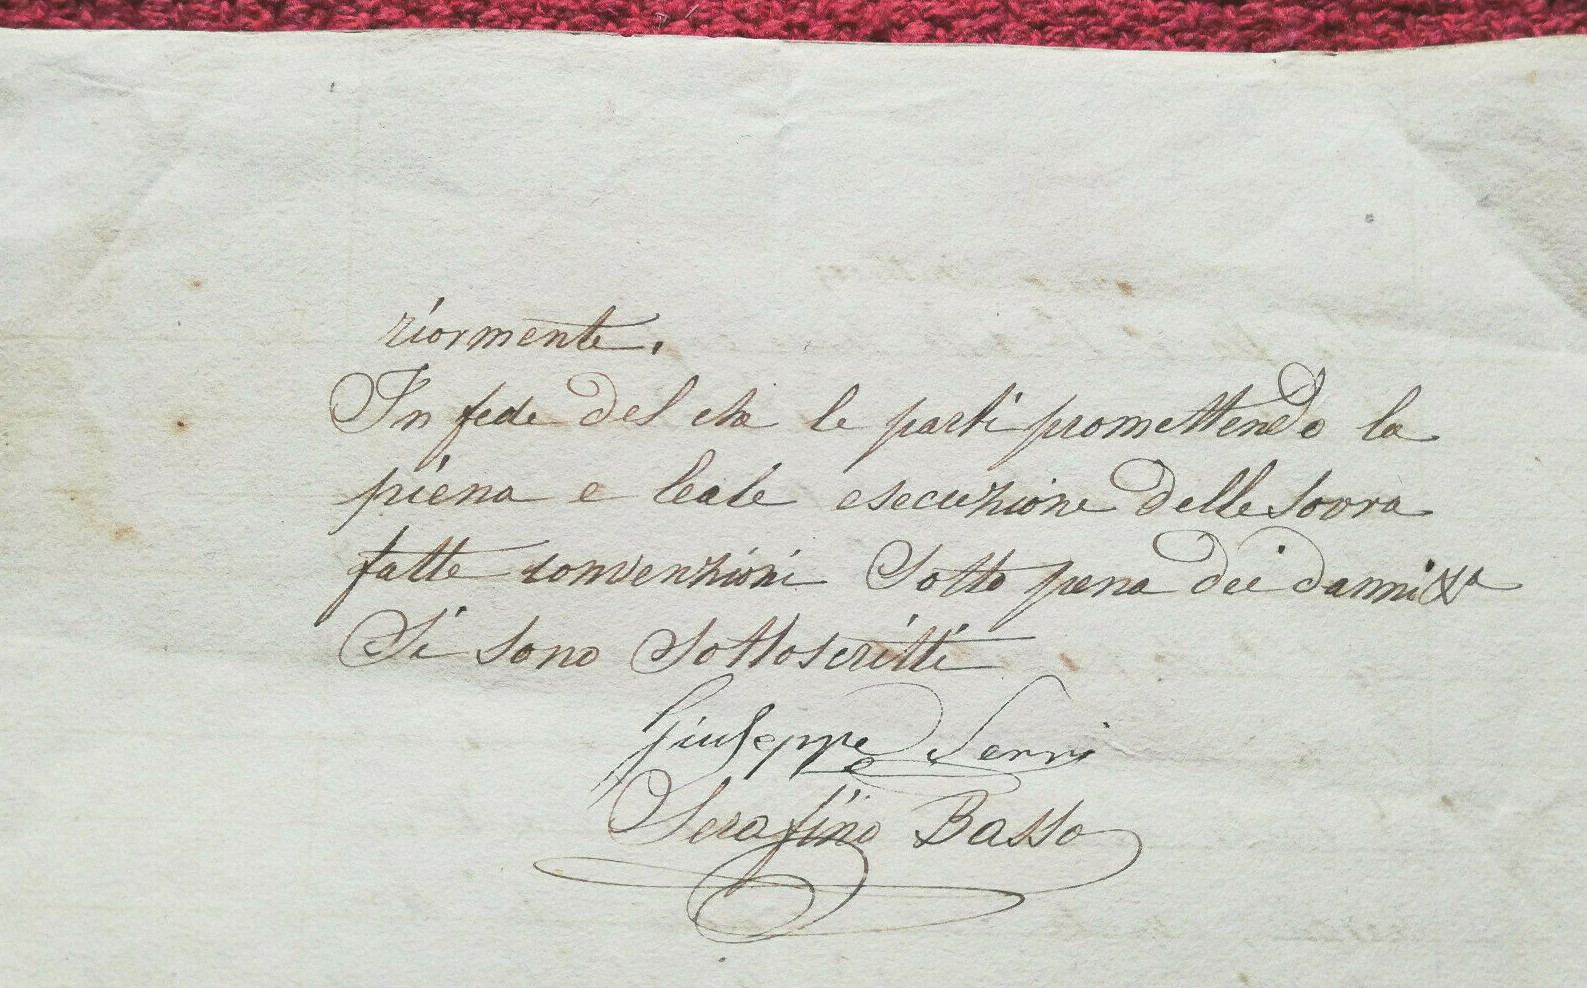 riormente.
In fede del che le parti promettendo la
piena e leale esecuzione delle sovra
fatte convenzioni Sotto pena dei danni &a
Si sono Sottoscritti
Giuseppe Serri
Serafino Basso